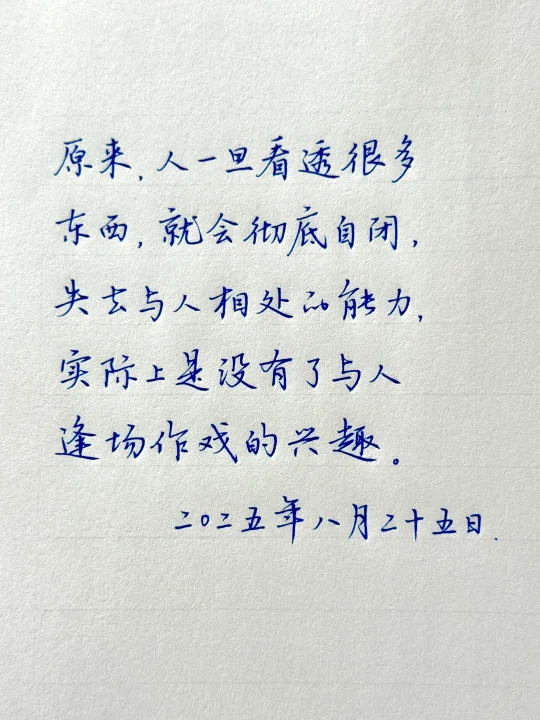 原来，人一旦看透很多
东西，就会彻底自闭，
失去与人相处的能力，
实际上是没有了与人
逢场作戏的兴趣。
二〇二五年八月二十五日.